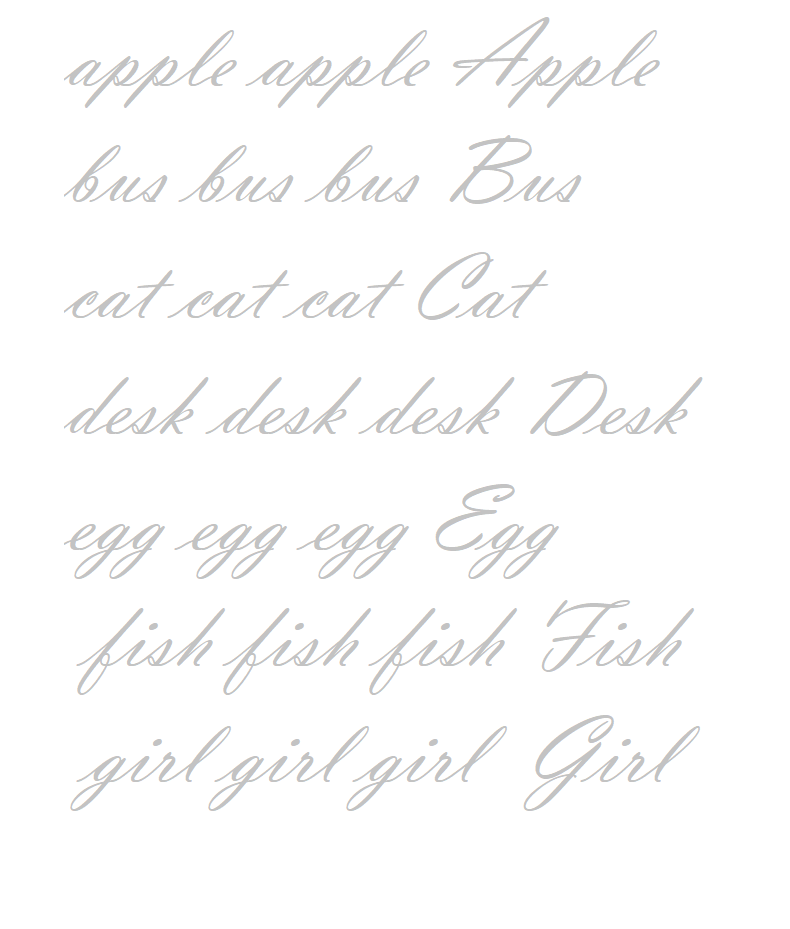 apple apple Apple
bus bus bus Bus
cat cat cat Cat
desk desk desk Desk
egg egg egg Egg
fish fish fish Fish
girl girl girl Girl